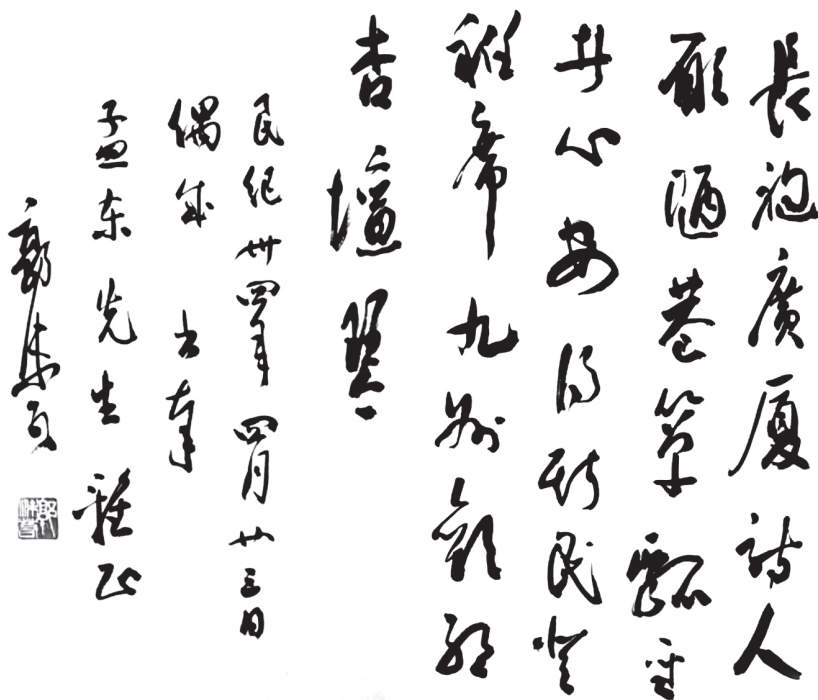 長袍廣厦詩人
願陋巷箪瓢聖
心安得斯民登
衽席九州歡聽
杏壇琴
民紀卅四年四月廿三日
偶成 書奉
孟東先生雅正
郭沫若